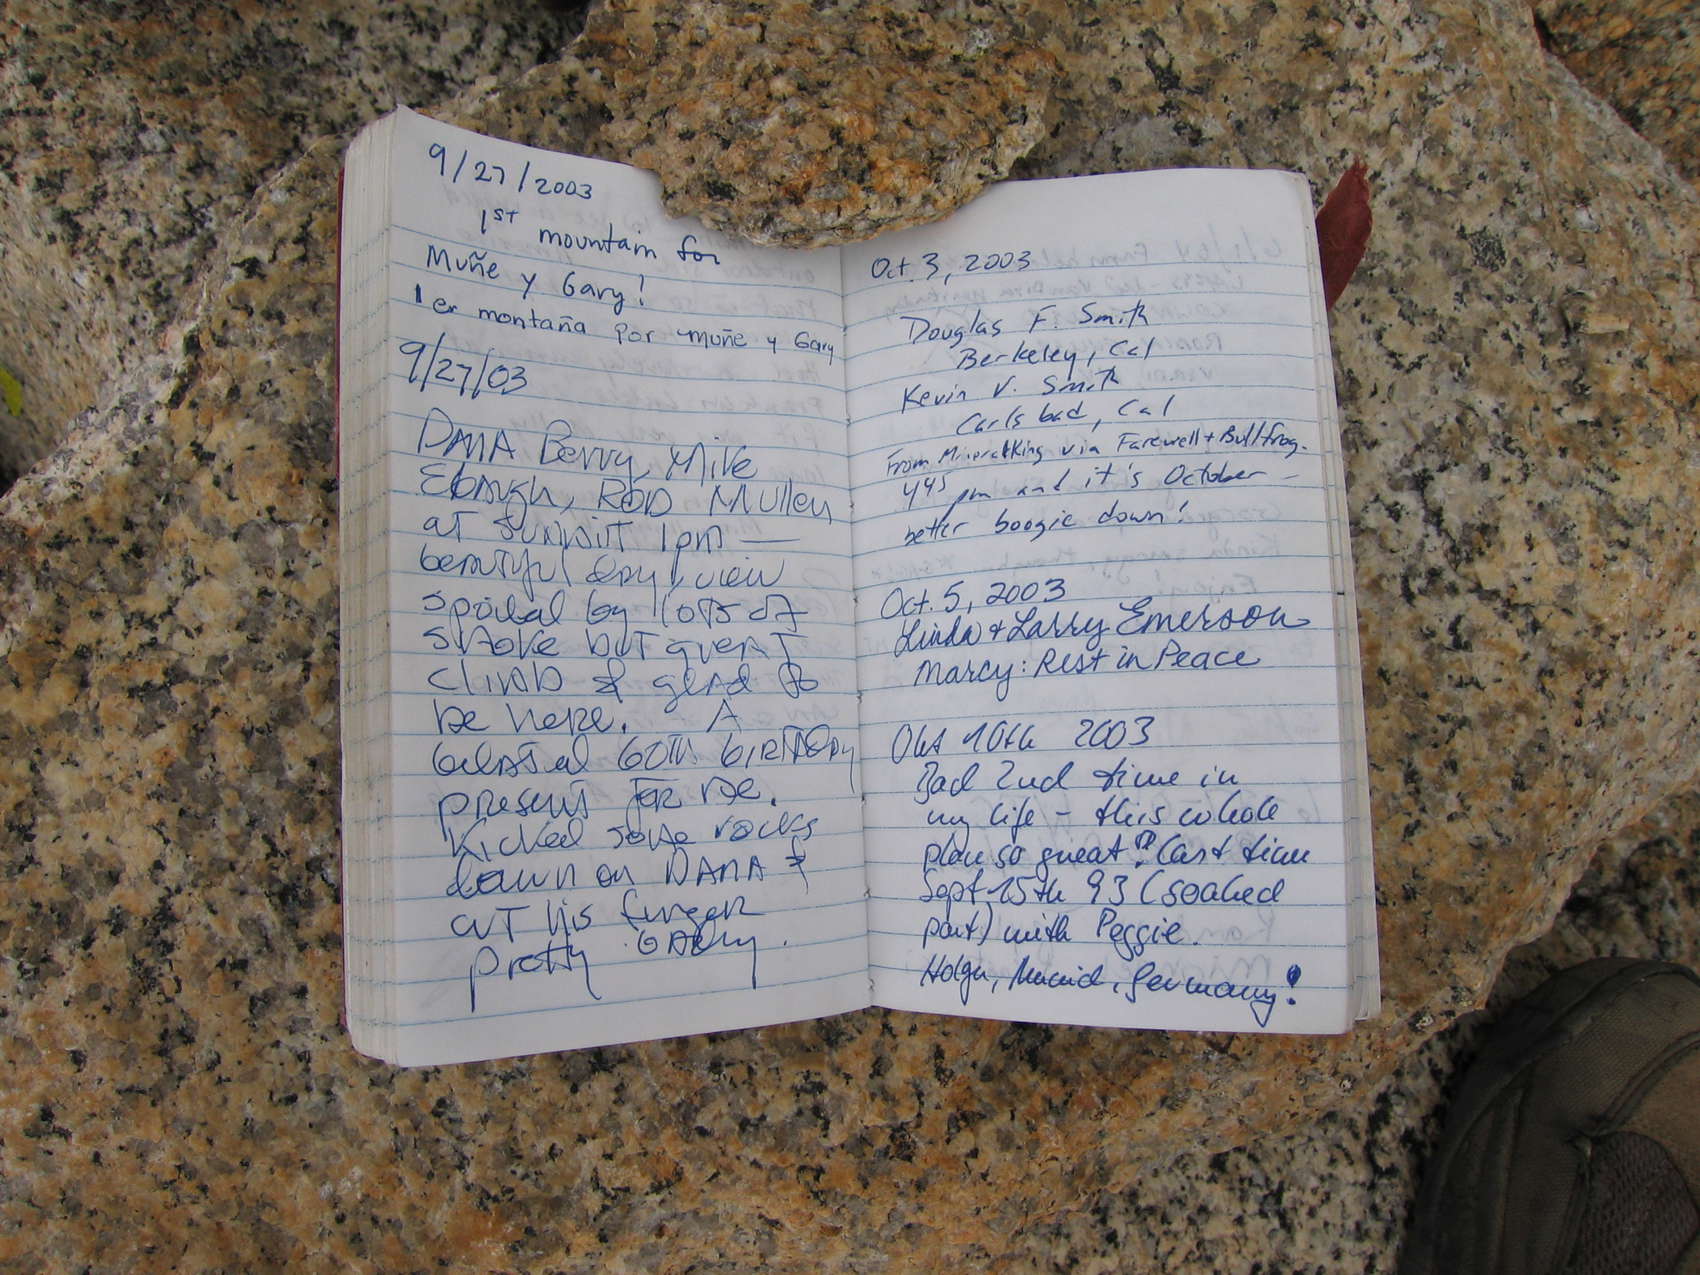 9/27/2003
1ST mountain for
Muñe y Gary!
1er montaña por muñe y Gary
9/27/03
DANA Berry, Mike
Ebaugh, ROD Mullen
AT SUMMIT 1pm —
beautiful day, view
spoiled by lots of
smoke but great
climb & glad to
be here. A
belated 60th birthday
present for me.
Kicked some rocks
down on DANA &
cut his finger
pretty badly.
Oct 3, 2003
Douglas F. Smith
Berkeley, Cal
Kevin V. Smith
Carlsbad, Cal
From Mineral King via Farewell + Bullfrog.
445 pm and it's October –
better boogie down!
Oct. 5, 2003
Linda + Larry Emerson
Marcy: Rest in Peace
Okt 10th 2003
2nd time in
my life – this whole
place so great! Last time
Sept. 15th 93 (soaked
part) with Peggie.
Holger, Munich, Germany!